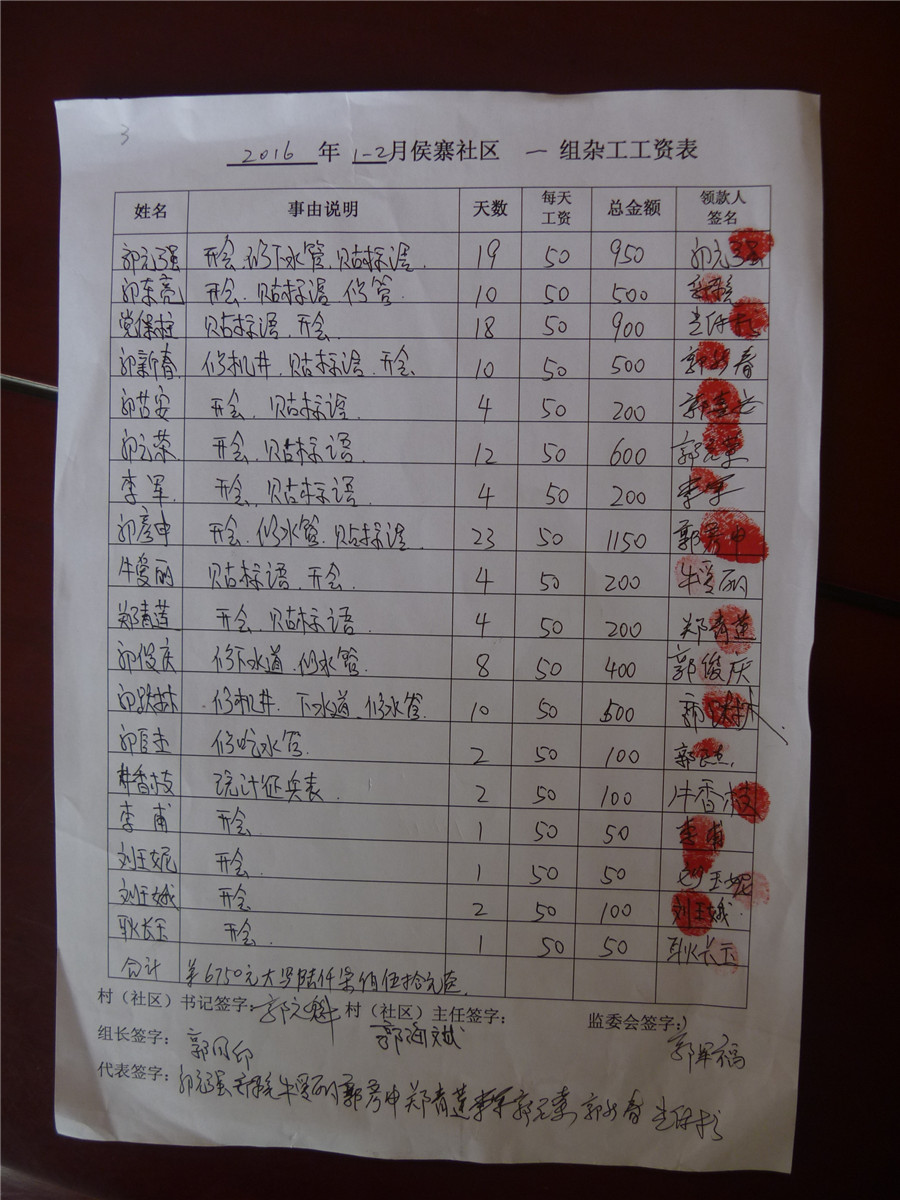 3
2016 年 1-2月侯寨社区 一 组杂工工资表
姓名 事由说明 天数 每天工资 总金额 领款人签名
郭元强 开会.修下水管.贴标语. 19 50 950 郭元强
郭东亮 开会.贴标语.修管. 10 50 500
党保柱 贴标语.开会. 18 50 900
郭新春 修机井.贴标语.开会 10 50 500 郭新春
开会.贴标语. 4 50 200
郭元荣 开会.贴标语. 12 50 600 郭元荣
李军. 开会.贴标语. 4 50 200 李军
郭彦申 开会.修水管.贴标语. 23 50 1150 郭彦申
牛爱丽 贴标语.开会. 4 50 200 牛爱丽
郑青莲 开会.贴标语. 4 50 200 郑青莲
郭俊庆 修下水道.修水管. 8 50 400 郭俊庆
修机井.下水道.修水管. 10 50 500
修吃水管. 2 50 100
牛香枝 统计征兵表. 2 50 100 牛香枝
李甫 开会. 1 50 50 李甫
刘玉妮 开会. 1 50 50 刘玉妮
刘玉娥 开会 2 50 100 刘玉娥.
耿长玉 开会. 1 50 50 耿长玉
合计 ¥6750元大写陆仟柒佰伍拾元正
村（社区）书记签字： 村（社区）主任签字： 监委会签字：
组长签字： 郭海斌 郭军福
代表签字： 郭元强 牛爱丽 郭彦申 郑青莲 李军 郭元荣 郭新春